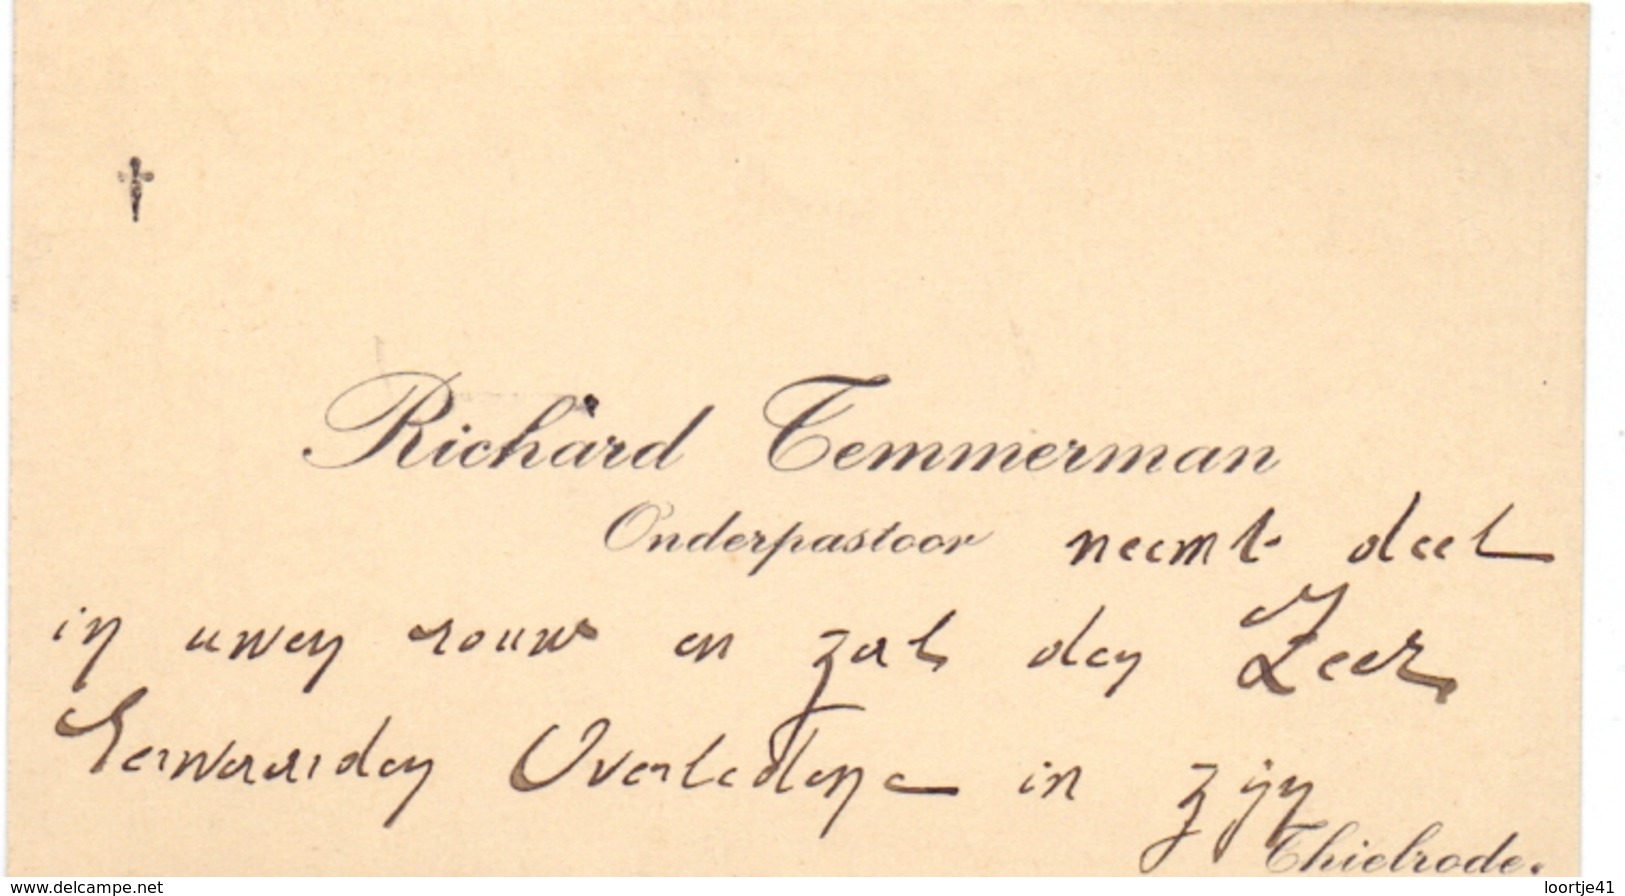 †
Richard Temmerman
Onderpastoor neemt deel
in uwen rouw en zal den Zeer
Eerwaarden Overledene in zijn
Thielrode.
www.delcampe.net
loortje41